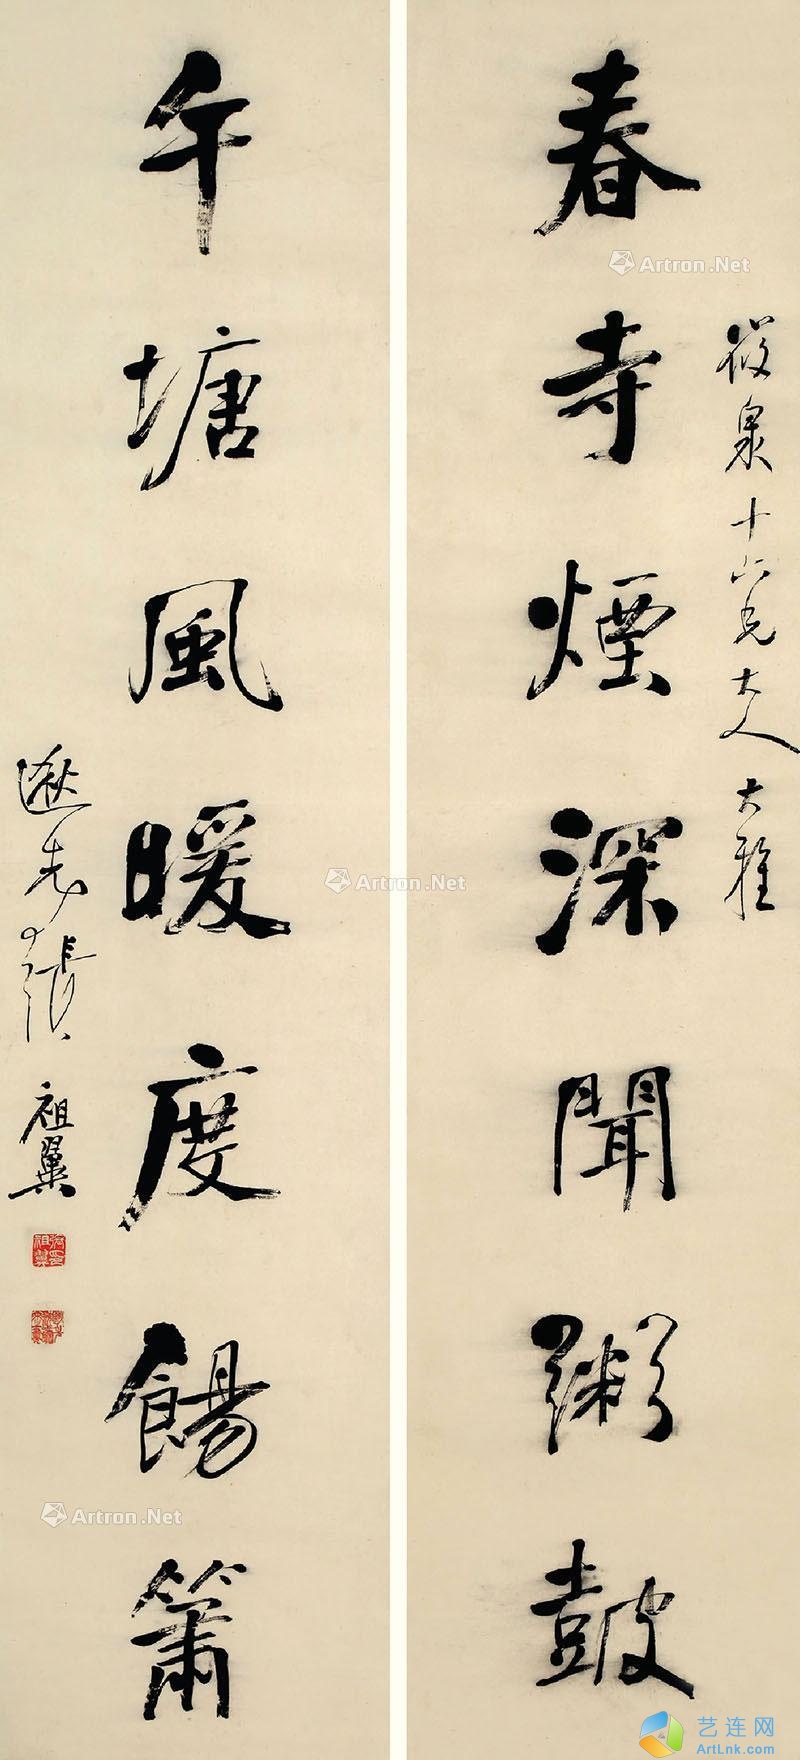 筱泉十六兄大人大雅
春寺煙深聞粥鼓
午塘風暖度餳簫
遯先張祖翼
Artron.Net
Artron.Net
Artron.Net
艺连网
ArtLnk.com